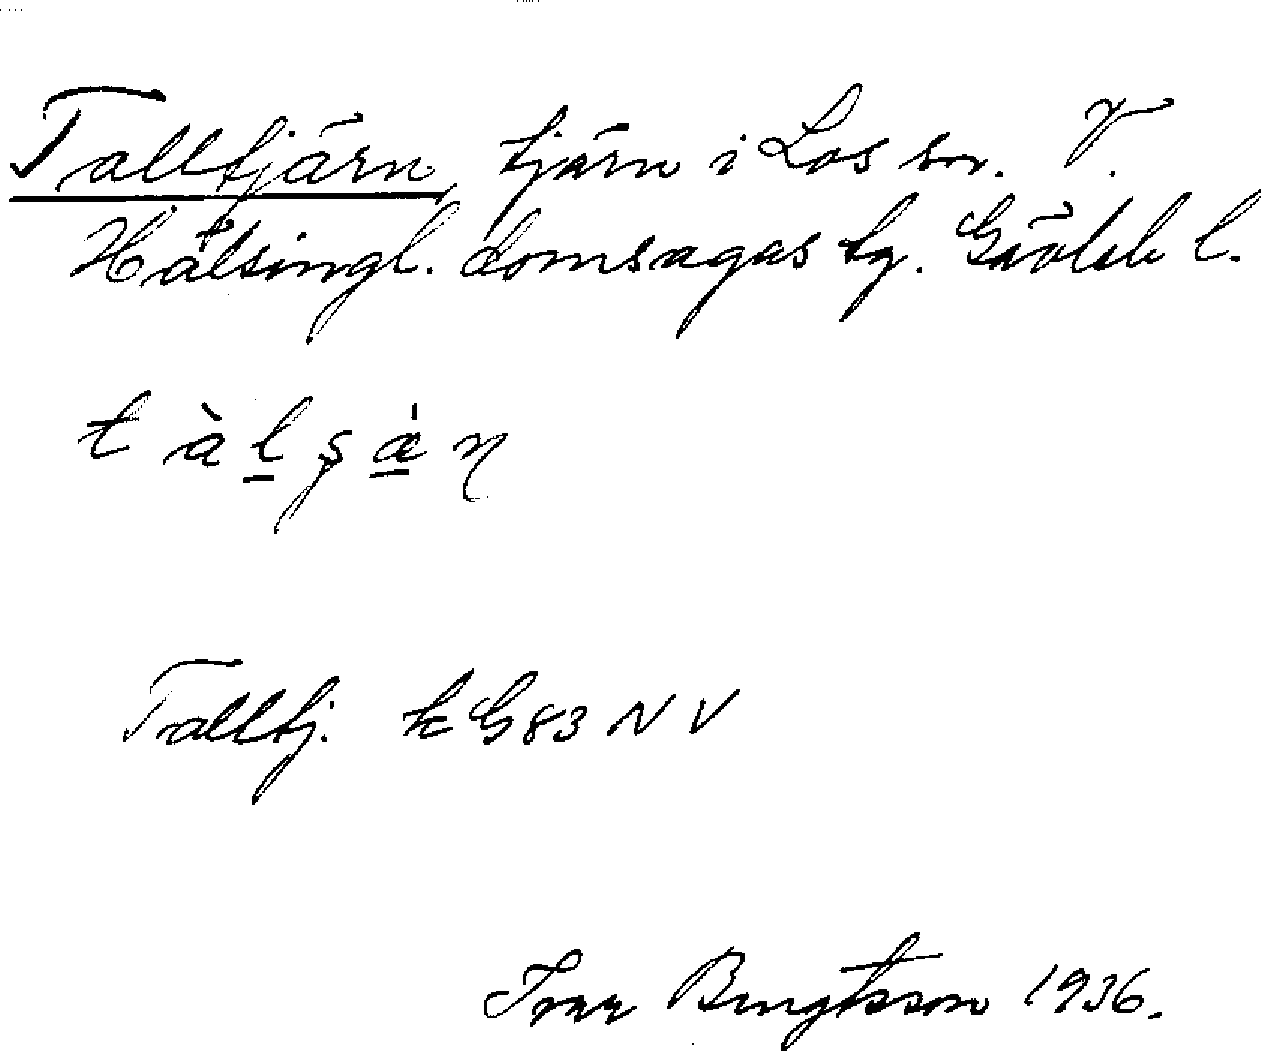 Talltjärn, tjärn i Los sn. V.
Hälsingl. domsagas tg. Gävleb l.
t à l ş æ̀ η
Talltj. k G83 NV
Ivar Bengtsson 1936.